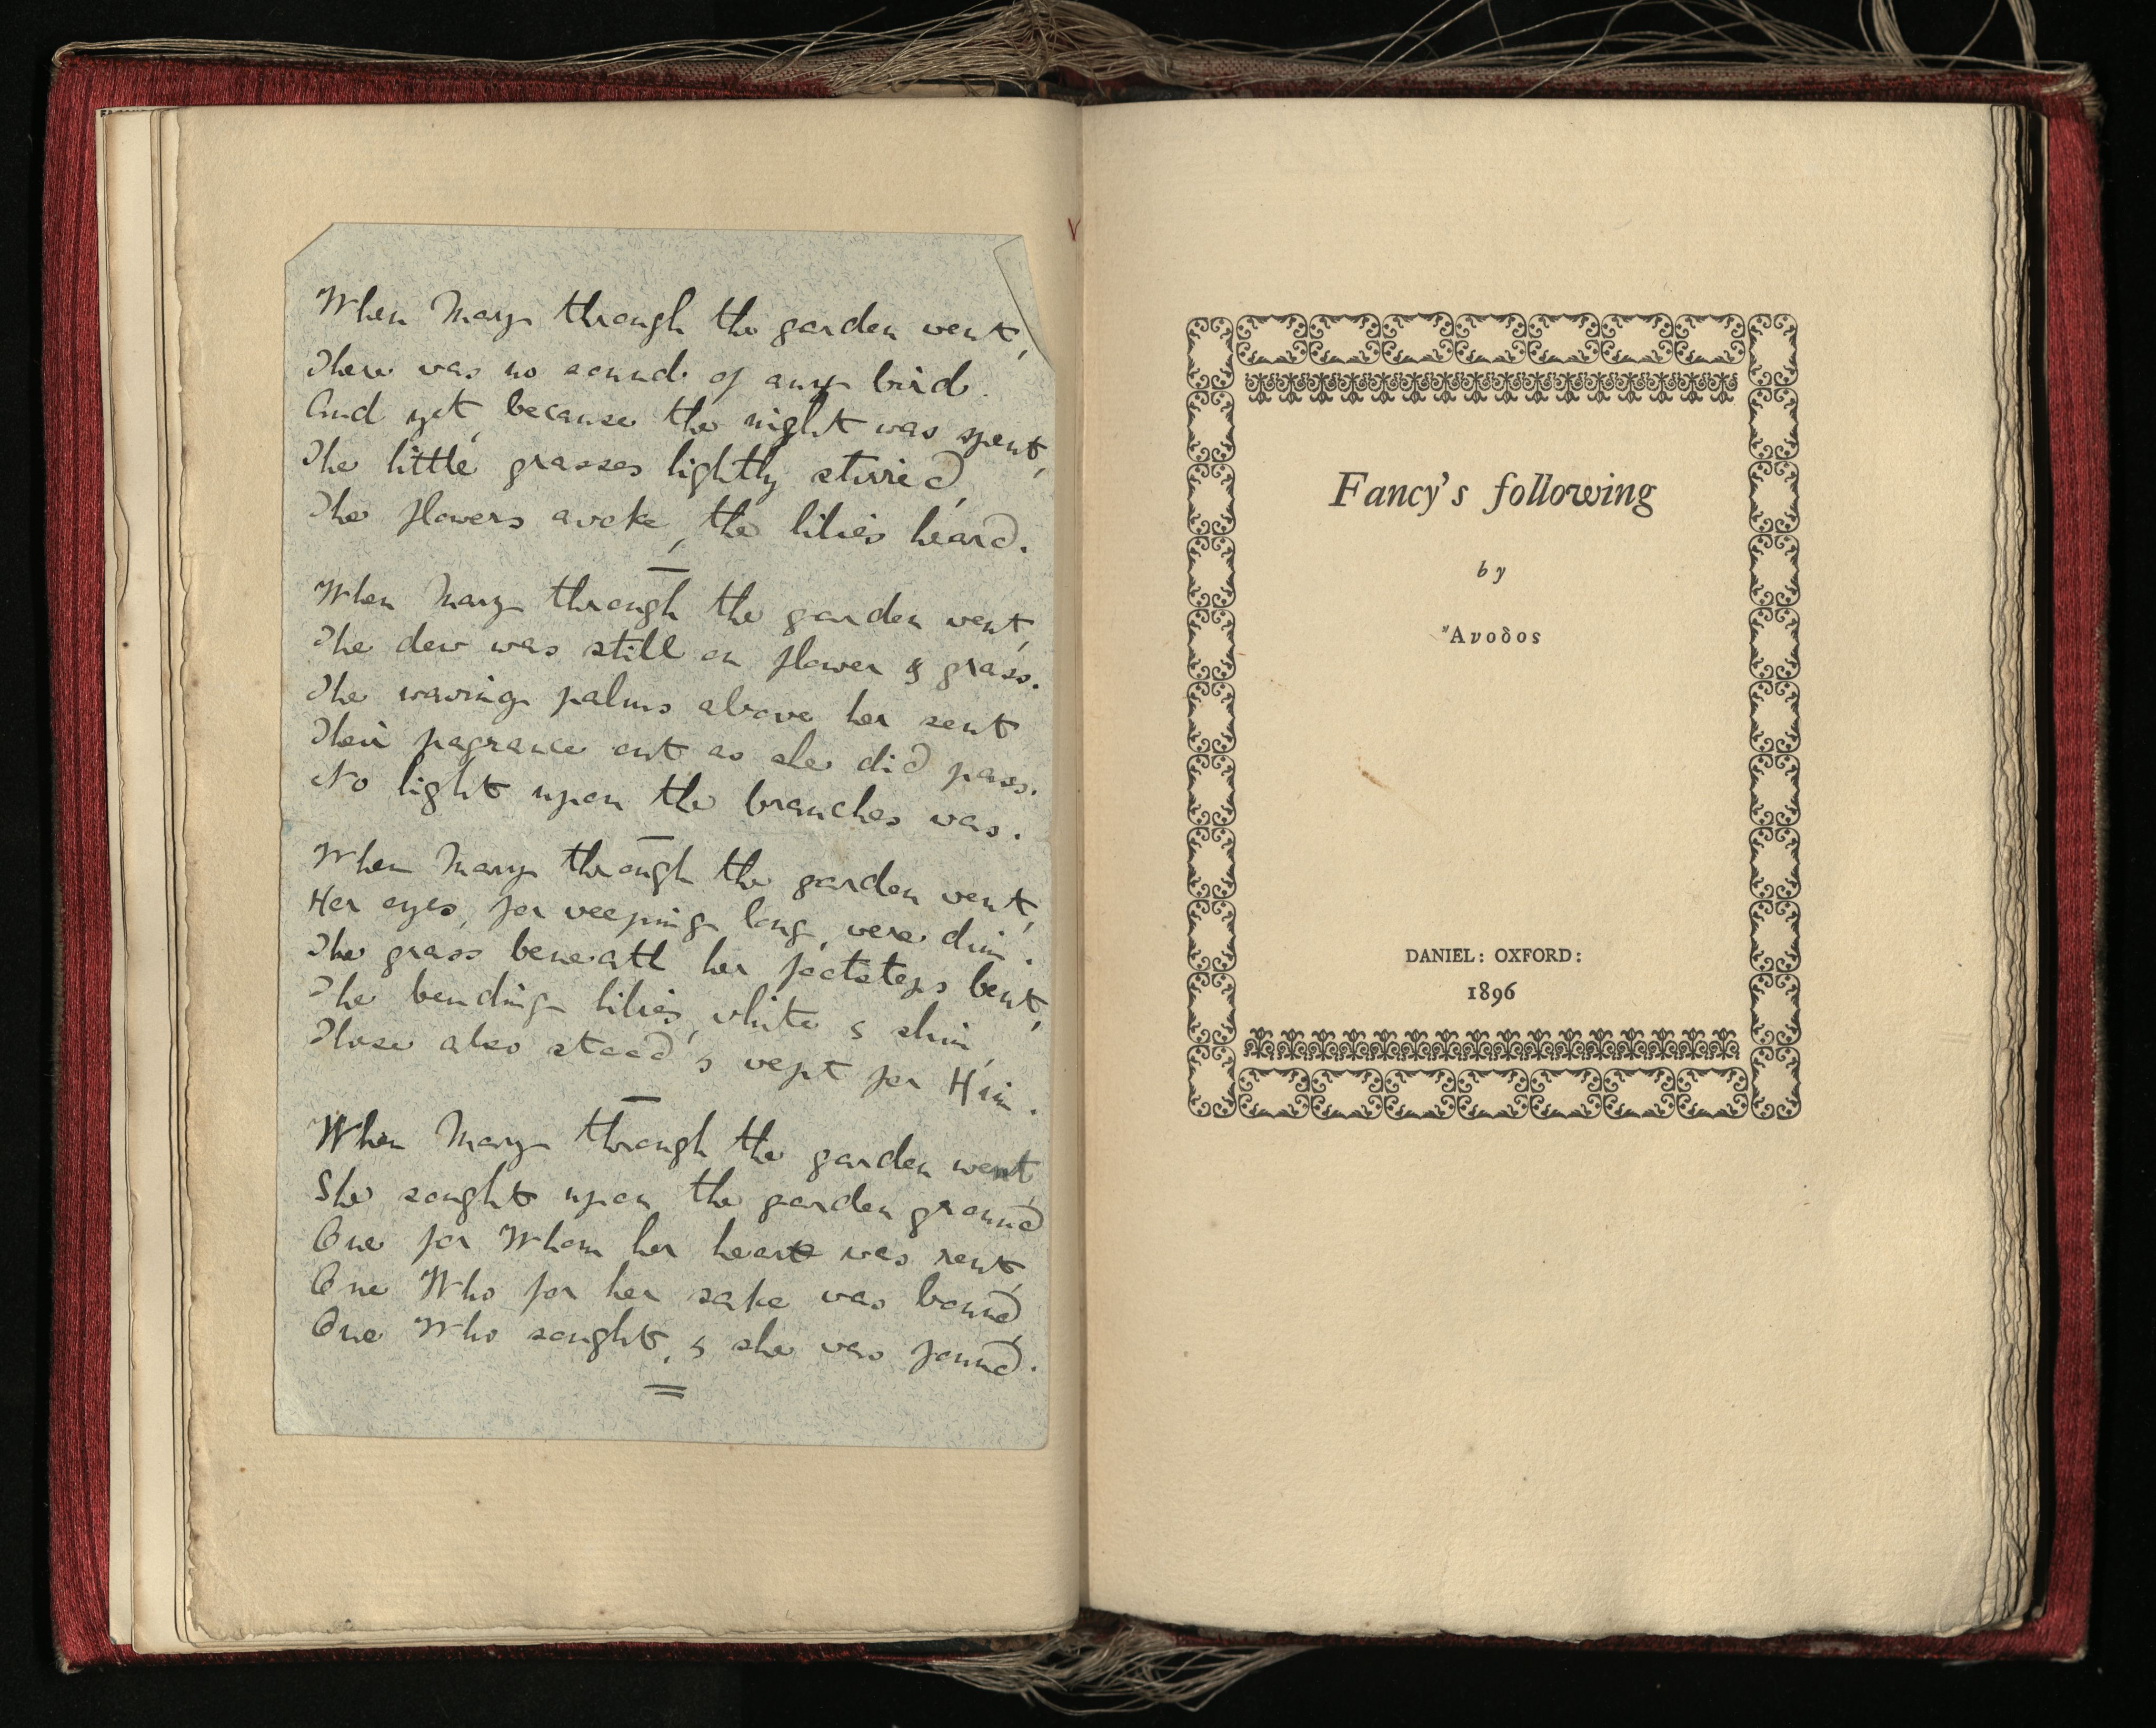 When Mary through the garden went,
There was no sound of any bird.
And yet, because the night was spent,
The little grasses lightly stirred,
The flowers awoke, the lilies heard.
When Mary through the garden went,
The dew was still on flower & grass.
The waving palms above her sent
Their fragrance out as she did pass.
No light upon the branches was.
When Mary through the garden went,
Her eyes, for weeping long, were dim.
The grass beneath her footsteps bent,
The bending lilies, white & slim,
Those also stood & wept for Him.
When Mary through the garden went,
She sought upon the garden ground
One for Whom her heart was rent,
One Who for her sake was bound,
One Who sought, & she was found.
Fancy's following
by
Ἄνοδος
DANIEL: OXFORD:
1896